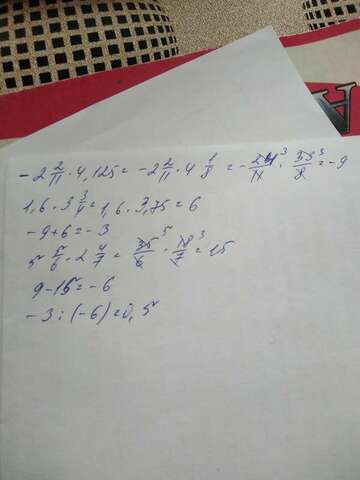 -2 2/11 · 4,125 = -2 2/11 · 4 1/8 = - 24/11 3 · 33/8 3 = -9
1,6 · 3 3/4 = 1,6 · 3,75 = 6
-9+6 = -3
5 5/6 · 2 4/7 = 35/6 5 · 18/7 3 = 15
9-15 = -6
-3 : (-6) = 0,5